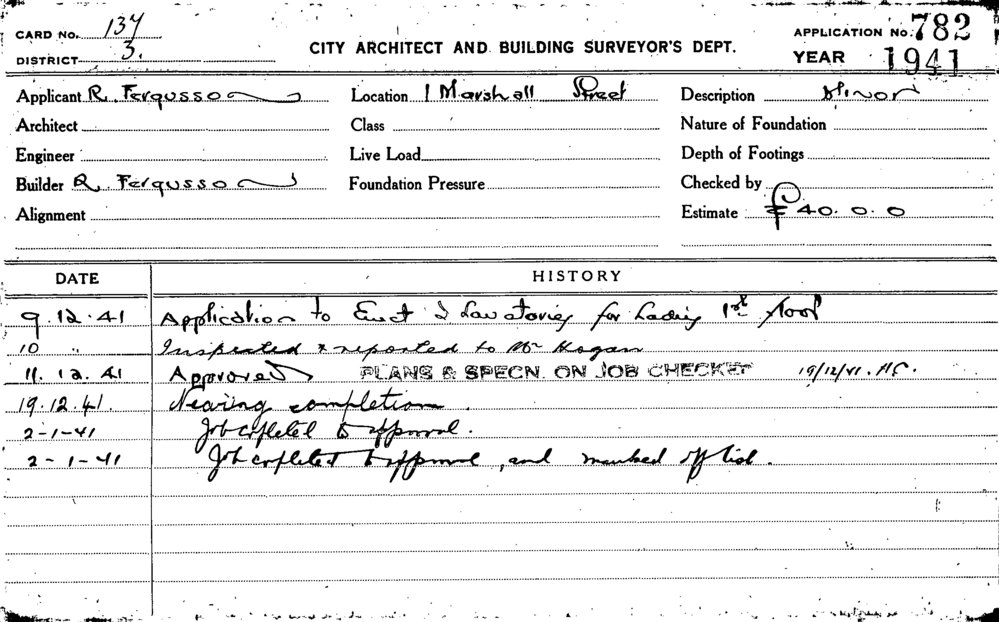 CARD No. 137
DISTRICT 3.
CITY ARCHITECT AND BUILDING SURVEYOR'S DEPT.
APPLICATION No. 782
YEAR 1941
Applicant R. Fergusson Location 1 Marshall Street Description Minor
Architect Class Nature of Foundation
Engineer Live Load Depth of Footings
Builder R. Fergusson Foundation Pressure Checked by
Alignment Estimate £40.0.0
DATE HISTORY
9.12.41 Application to Erect 2 Lavatories for Ladies 1st floor
10 " Inspected & reported to Mr Hogan
11.12.41 Approved PLANS & SPECN. ON JOB CHECKED 19/12/41. HC.
19.12.41. Nearing completion.
2-1-41 Job copleted to approval.
2-1-41 Job copleted to approval, and marked off list.